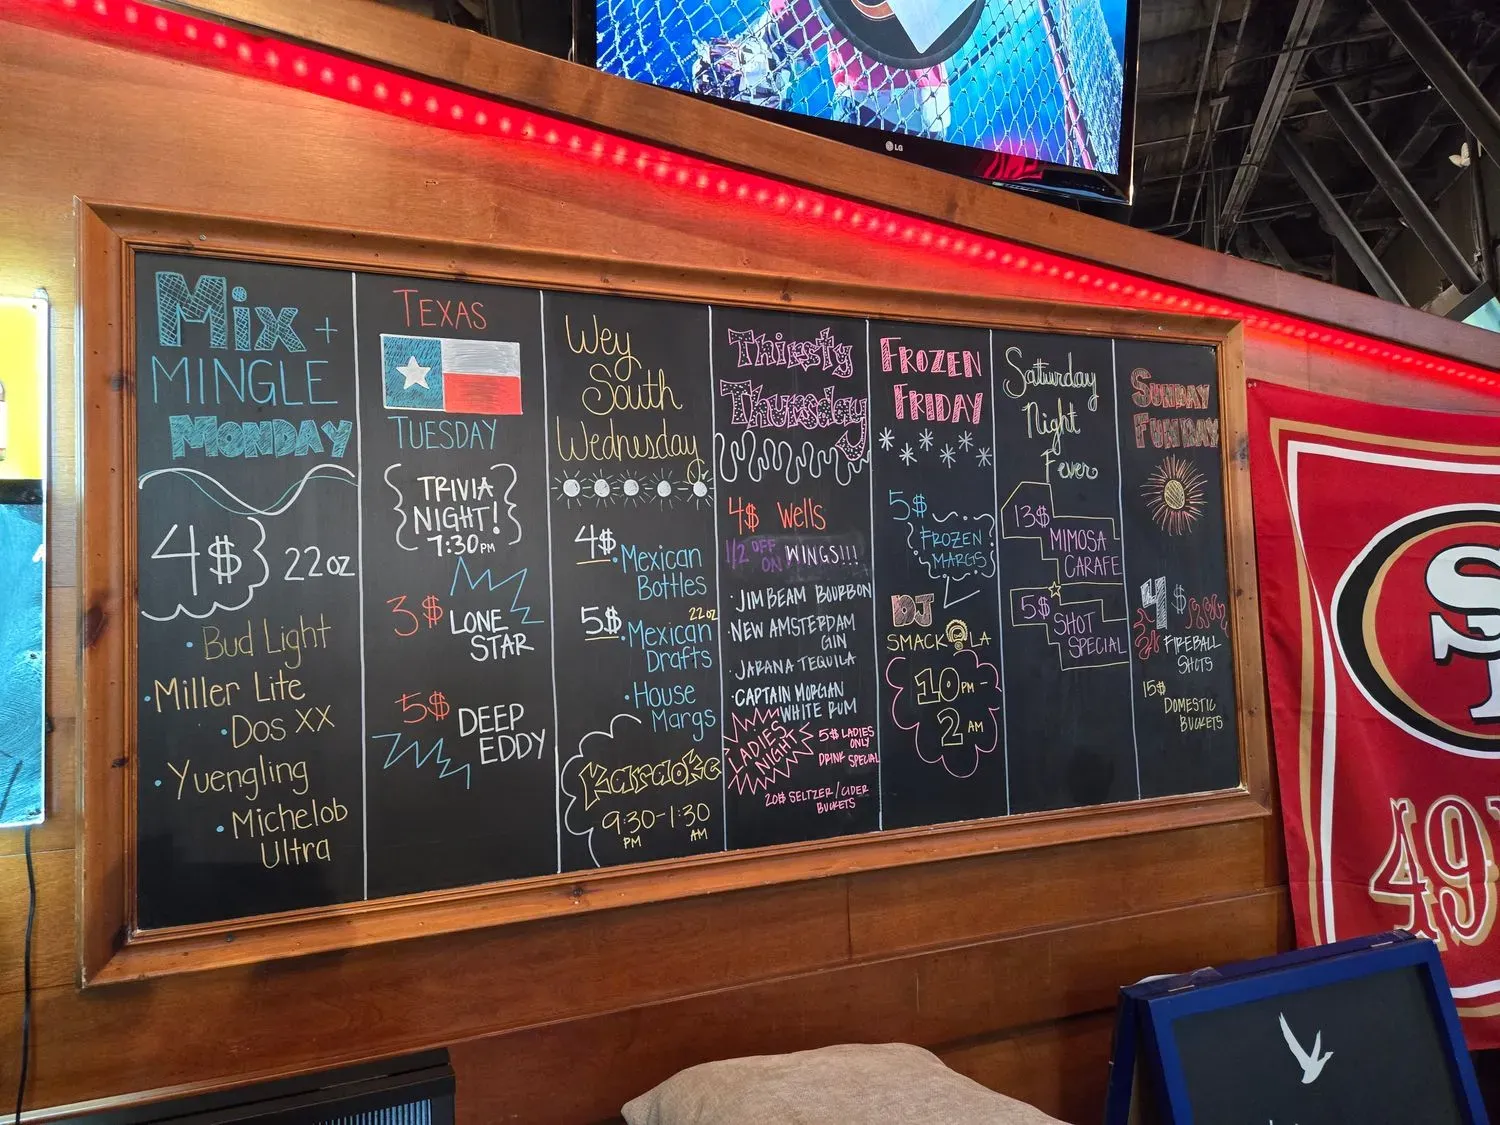 LG
Mix +
MINGLE
MONDAY
4$ 22oz
· Bud Light
· Miller Lite
· Dos XX
· Yuengling
· Michelob
Ultra
TEXAS
TUESDAY
TRIVIA
NIGHT!
7:30PM
3$ LONE
STAR
5$ DEEP
EDDY
Wey
South
Wednesday
4$ · Mexican
Bottles
5$ · 22oz
Mexican
Drafts
· House
Margs
Karaoke
9:30-1:30
PM AM
Thirsty
Thursday
4$ Wells
1/2 OFF
ON WINGS!!!
· JIM BEAM BOURBON
· NEW AMSTERDAM
GIN
· JABANA TEQUILA
· CAPTAIN MORGAN
WHITE RUM
LADIES
NIGHT
5$ LADIES
ONLY
DRINK SPECIAL
20$ SELTZER/CIDER
BUCKETS
FROZEN
FRIDAY
5$
FROZEN
MARGS
DJ
SMACK@LA
10PM-
2AM
Saturday
Night
Fever
13$
MIMOSA
CARAFE
5$
SHOT
SPECIAL
SUNDAY
FUNDAY
4$
FIREBALL
SHOTS
15$
DOMESTIC
BUCKETS
S
49